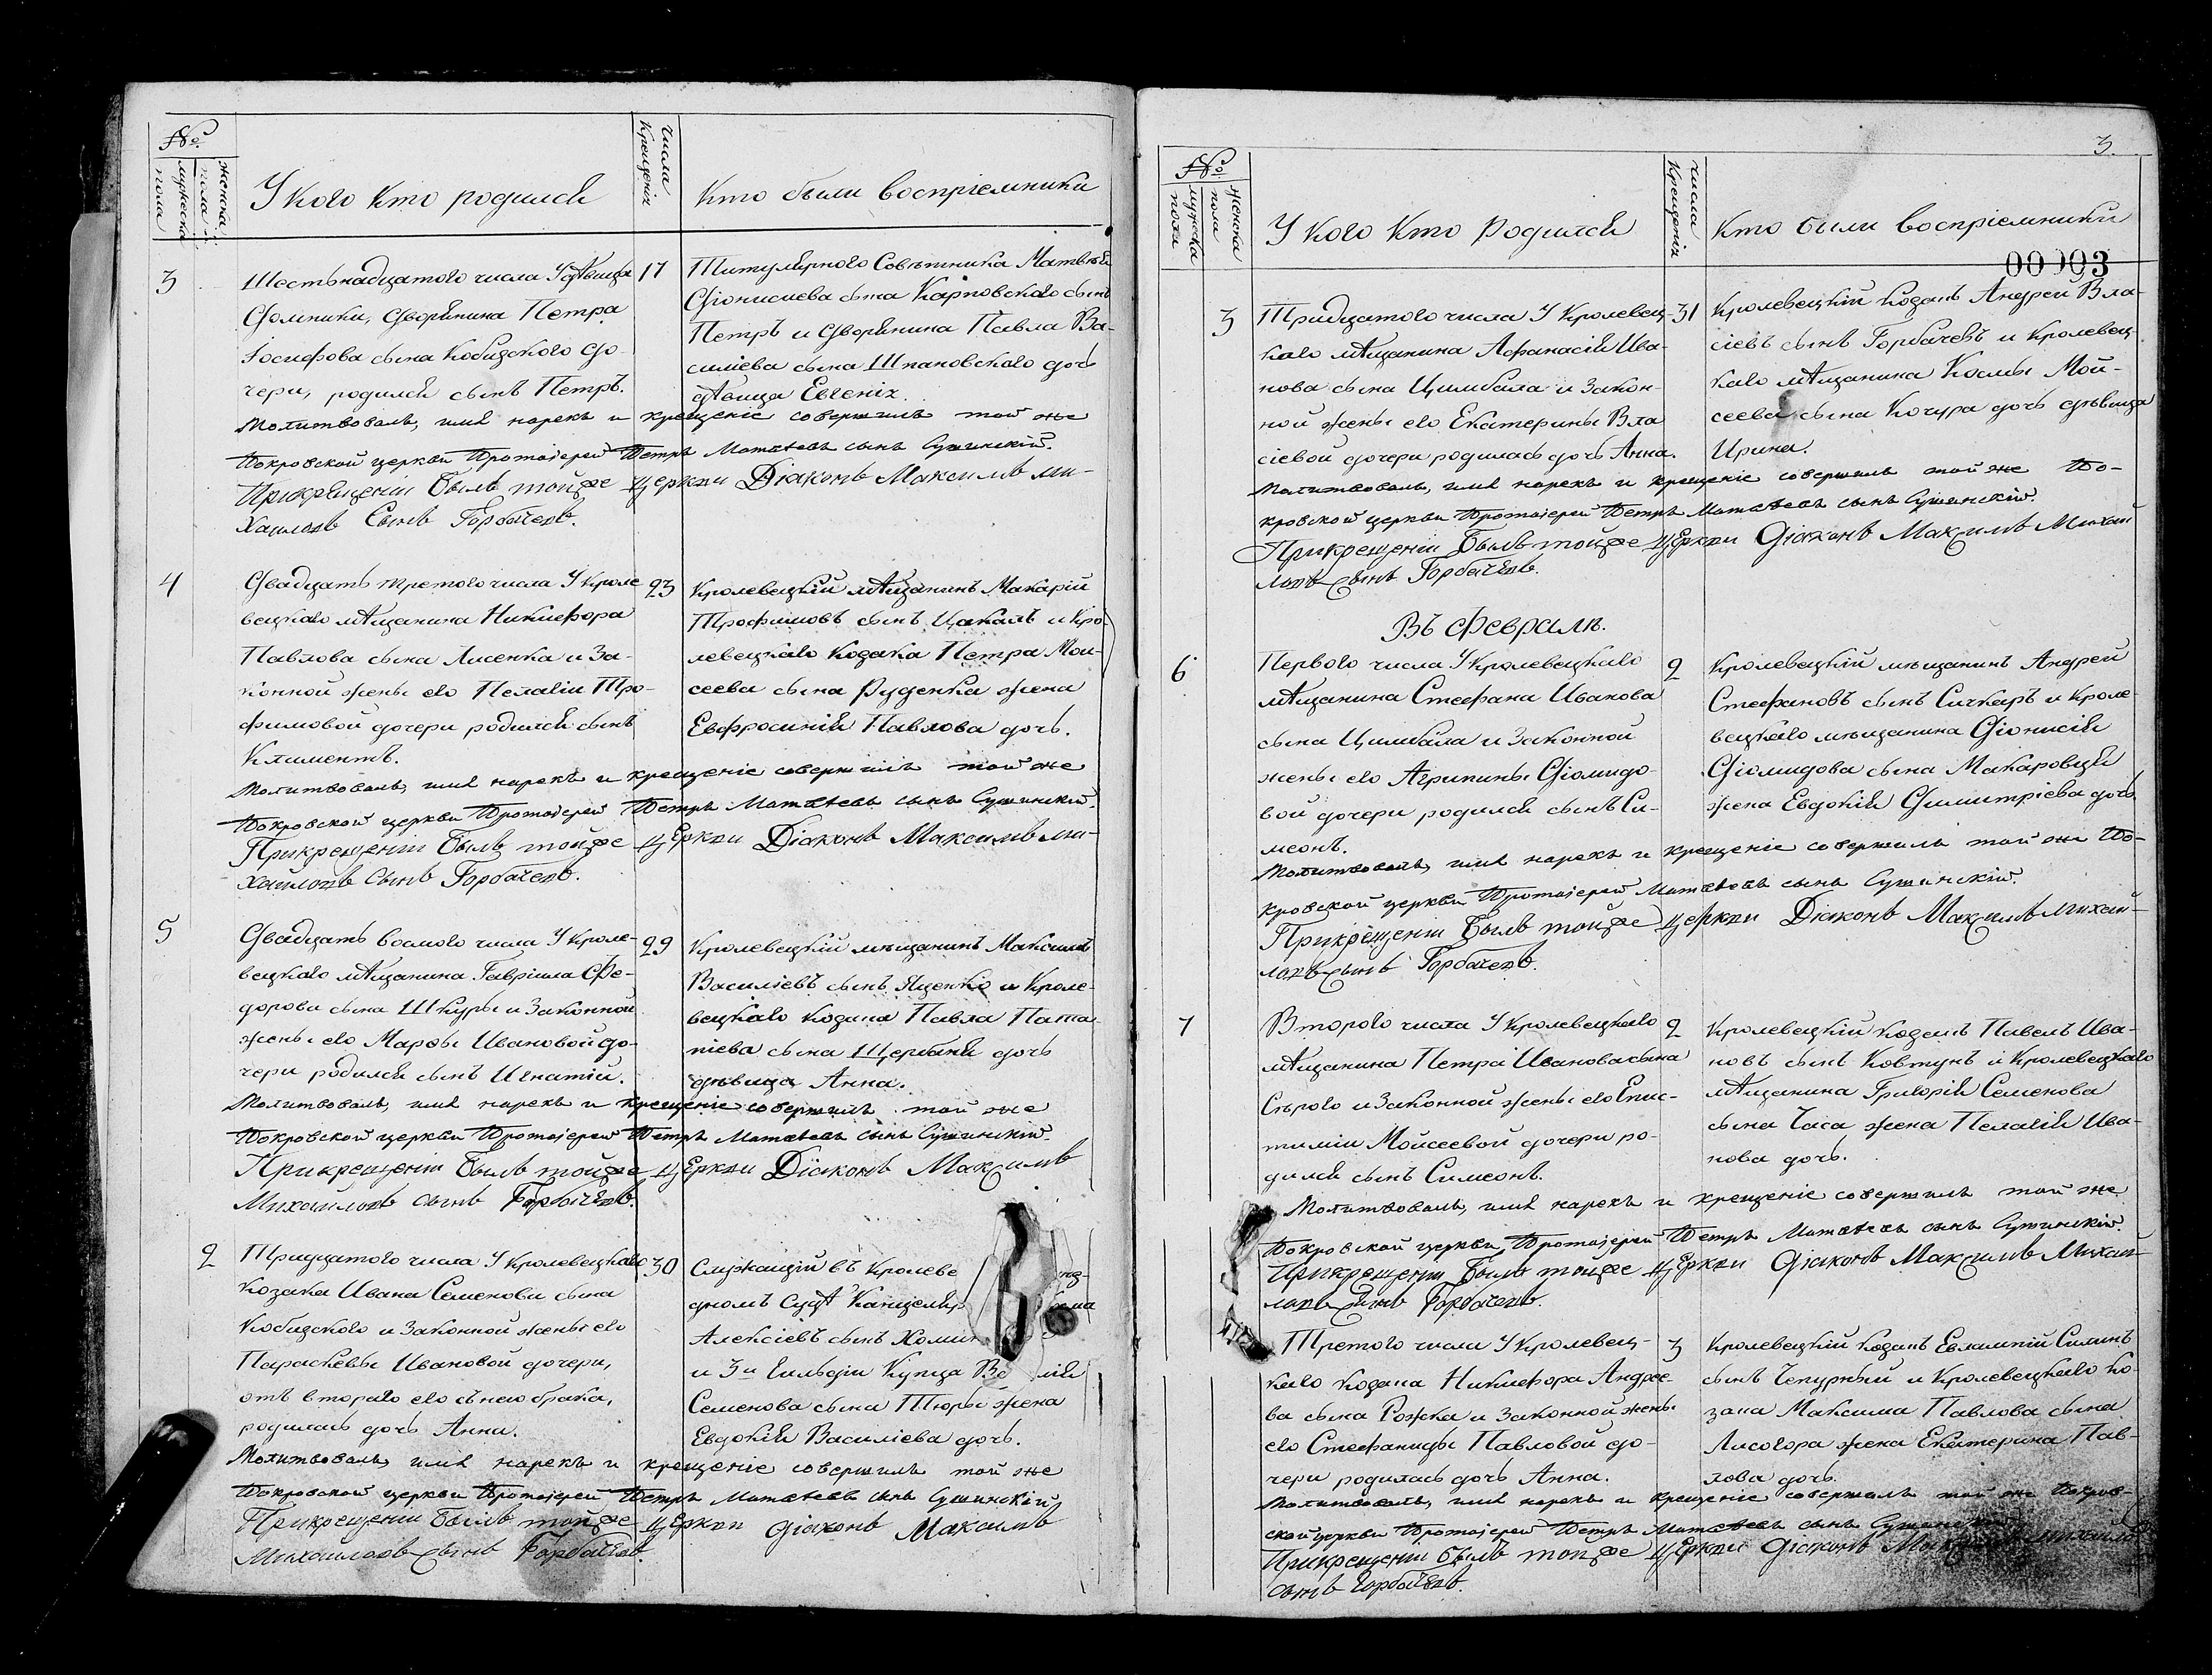 №.
мужеска пола
женска пола
У кого кто родился
числа крещенія
Кто были воспріемники
3
Шестьнадцатого числа У дѣвицы
Домники, дворянина Петра
Іосифова сына Кобизского до-
чери, родился сынъ Петръ.
17
Титулярного Совѣтника Матвѣя
Діонисиева сына Карповского сынъ
Петръ и дворянина Павла Ва-
силіева сына Шпановского дочь
дѣвица Евгенія.
Молитвовалъ, имя нарекъ и крещеніе совершилъ той же
Покровской церкви Протоіерей Петръ Матвѣевъ сынъ Сушинскій.
При крещеніи былъ тойже церкви Діаконъ Максимъ Ми-
хайловъ Сынъ Горбачевъ.
4
Двадцать третого числа У Кроле
вецкаго мѣщанина Никифора
Павлова сына Лисенка и За-
конной жены его Пелагіи Тро-
фимовой дочери родился сынъ
Климентъ.
23
Кролевецкій мѣщанинъ Макарій
Трофимовъ сынъ Цакалъ и Кро-
левецкаго козака Петра Мои-
сеева сына Руденка жена
Евфросинія Павлова дочь.
Молитвовалъ, имя нарекъ и крещеніе совершилъ той же
Покровской церкви Протоіерей Петръ Матвѣевъ сынъ Сушинскій.
При крещеніи былъ тойже церкви Діаконъ Максимъ Ми-
хайловъ Сынъ Горбачевъ.
5
Двадцать восмого числа У Кроле-
вецкаго мѣщанина Гавріила Фе-
дорова сына Шкуры и Законной
жены его Марфы Ивановой до-
чери родился сынъ Игнатій.
29
Кролевецкій мѣщанинъ Максимъ
Василіевъ сынъ Яценко и Кроле-
вецкаго козака Павла Пата-
піева сына Щербаня дочь
дѣвица Анна.
Молитвовалъ, имя нарекъ и крещеніе совершилъ той же
Покровской церкви Протоіерей Петръ Матвѣевъ сынъ Сушинскій.
При крещеніи былъ тойже церкви Діаконъ Максимъ
Михайловъ сынъ Горбачевъ.
2
Тридцатого числа У Кролевецкаго
козака Ивана Семенова сына
Кобизского и Законной жены его
Параскевы Ивановой дочери,
отъ второго его съ нею брака,
родилась дочь Анна.
30
Служащій въ Кролеве
дномъ Судѣ Канцеляр
Алексіевъ сынъ Хоми
и 3й Гильдіи Купца Ва лія
Семенова сына Тюры жена
Евдокія Василіева дочь.
Молитвовалъ, имя нарекъ и крещеніе совершилъ той же
Покровской церкви Протоіерей Петръ Матвѣевъ сынъ Сушинскій
При крещеніи былъ тойже церкви Діаконъ Максимъ
Михайловъ сынъ Горбачевъ.
3.
№.
мужеска пола
женска пола
У кого кто родился
числа крещенія
Кто были воспріемники
00003
3
Тридцатого числа У Кролевец-
каго мѣщанина Афанасія Ива-
нова сына Цимбала и Закон-
ной жены его Екатерины Вла
сіевой дочери родилась дочь Анна.
31
Кролевецкій козакъ Андрей Вла-
сіевъ сынъ Горбачевъ и Кролевец-
каго мѣщанина Космы Мой-
сеева сына Кочура дочь дѣвица
Ирина.
Молитвовалъ, имя нарекъ и крещеніе совершилъ той же По-
кровской церкви Протоіерей Петръ Матвѣевъ сынъ Сушинскій.
При крещеніи былъ тойже церкви Діаконъ Максимъ Михай
ловъ сынъ Горбачевъ.
Въ Февралѣ.
6
Первого числа У Кролевецкаго
мѣщанина Стефана Иванова
сына Цимбала и Законной
жены его Агрипины Діомидо-
вой дочери родился сынъ Си-
меонъ.
2
Кролевецкій мѣщанинъ Андрей
Стефановъ сынъ Сичкаръ и Кроле-
вецкаго мѣщанина Діонисія
Діомидова сына Макаровця
жена Евдокія Димитріева дочь.
Молитвовалъ, имя нарекъ и крещеніе совершилъ той же По-
кровской церкви Протоіерей Матвѣевъ сынъ Сушинскій.
При крещеніи былъ тойже церкви Діаконъ Максимъ Михай-
ловъ сынъ Горбачевъ.
7
Второго числа У Кролевецкаго
мѣщанина Петра Иванова сына
Сѣрого и Законной жены его Епис-
тиміи Мойсеевой дочери ро-
дился сынъ Симеонъ.
2
Кролевецкій козакъ Павелъ Ива-
новъ сынъ Ковтунъ и Кролевецкаго
мѣщанина Григорія Семенова
сына Часа жена Пелагія Ива-
нова дочь.
Молитвовалъ, имя нарекъ и крещеніе совершилъ той же
Покровской церкви Протоіерей Петръ Матвѣевъ сынъ Сушинскій.
При крещеніи былъ тойже церкви Діаконъ Максимъ Михай-
ловъ сынъ Горбачевъ.
Третого числа У Кролевец-
каго козака Никифора Андрее
ва сына Рожка и Законной жены
его Стефаниды Павловой до-
чери родилась дочь Анна.
3
Кролевецкій козакъ Евлампій Силинъ
сынъ Чепурный и Кролевецкаго ко-
зака Максима Павлова сына
Лисогора жена Екатерина Пав-
лова дочь.
Молитвовалъ, имя нарекъ и крещеніе совершилъ той же Покров-
ской церкви Протоіерей Петръ Матвѣевъ сынъ Сушинскій
При крещеніи былъ тойже церкви Діаконъ Максимъ Михайло
сынъ Горбачевъ.